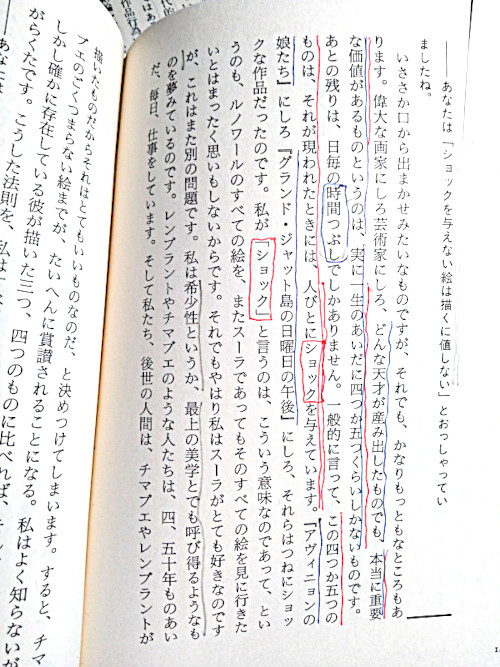 ――あなたは「ショックを与えない絵は描くに値しない」とおっしゃってい
ましたね。
いささか口から出まかせみたいなものですが、それでも、かなりもっともなところもあ
ります。偉大な画家にしろ芸術家にしろ、どんな天才が産み出したものでも、本当に重要
な価値があるものというのは、実に一生のあいだに四つか五つくらいしかないものです。
あとの残りは、日毎の時間つぶしでしかありません。一般的に言って、この四つか五つの
ものは、それが現われたときには、人びとにショックを与えています。『アヴィニョンの
娘たち』にしろ『グランド・ジャット島の日曜日の午後』にしろ、それらはつねにショッ
クな作品だったのです。私が「ショック」と言うのは、こういう意味なのであって、とい
うのも、ルノワールのすべての絵を、またスーラであってもそのすべての絵を見に行きた
いとはまったく思いもしないからです。それでもやはり私はスーラがとても好きなのです
が、これはまた別の問題です。私は希少性というか、最上の美学とでも呼び得るようなも
のを夢みているのです。レンブラントやチマブエのような人たちは、四、五十年ものあい
だ、毎日、仕事をしています。そして私たち、後世の人間は、チマブエやレンブラントが
描いたものだからそれはとてもいいものなのだ、と決めつけてしまいます。すると、チマ
ブエのごくつまらない絵までが、たいへんに賞讃されることになる。私はよく知らないが
しかし確かに存在している彼が描いた三つ、四つのものに比べれば、
がらくたです。こうした法則を、私は